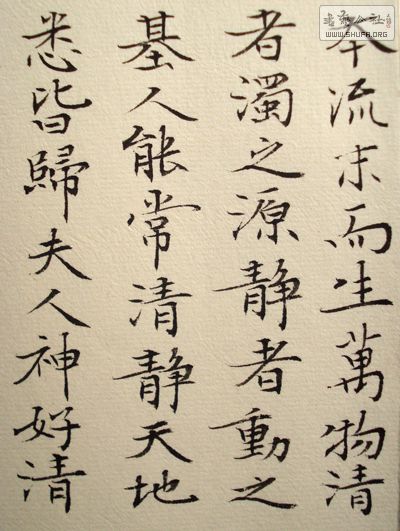 本流末而生萬物清
者濁之源静者動之
基人能常清静天地
悉皆歸夫人神好清
书法公社
WWW.SHUFA.ORG